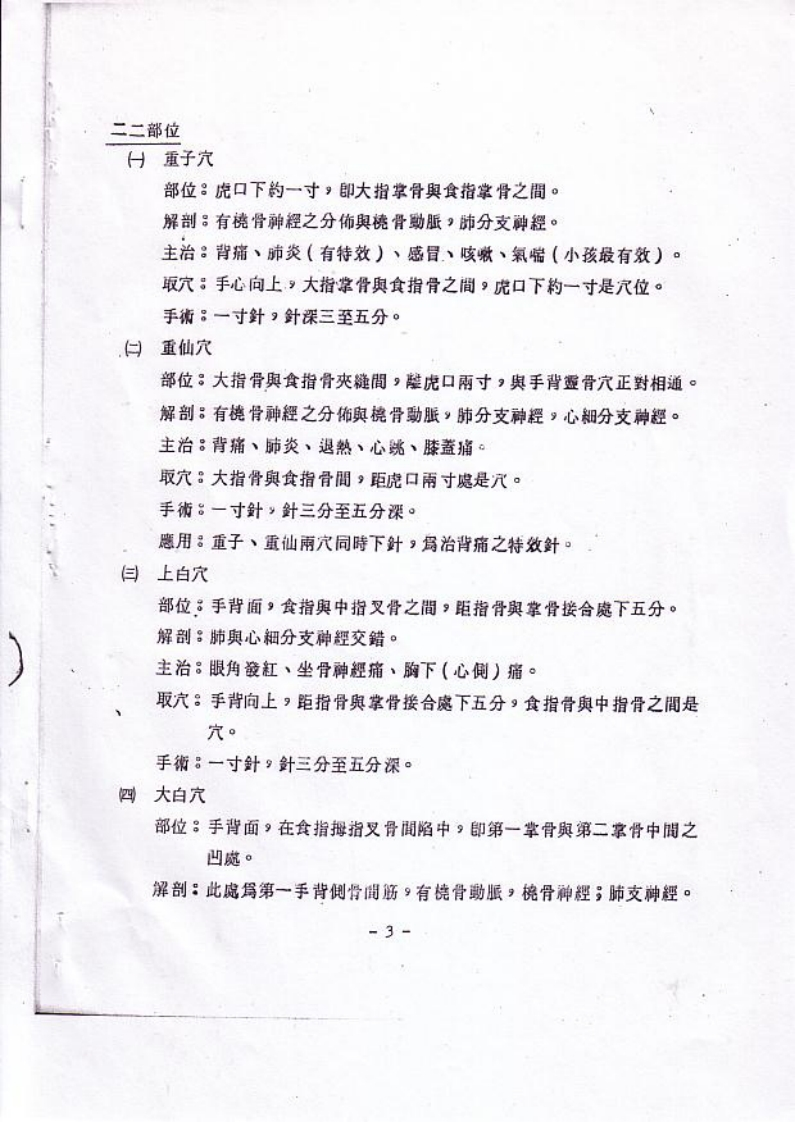 二二部位
㈠ 重子穴
部位：虎口下約一寸，即大指掌骨與食指掌骨之間。
解剖：有橈骨神經之分佈與橈骨動脈，肺分支神經。
主治：背痛、肺炎（有特效）、感冒、咳嗽、氣喘（小孩最有效）。
取穴：手心向上，大指掌骨與食指骨之間，虎口下約一寸是穴位。
手術：一寸針，針深三至五分。
㈡ 重仙穴
部位：大指骨與食指骨夾縫間，離虎口兩寸，與手背靈骨穴正對相通。
解剖：有橈骨神經之分佈與橈骨動脈，肺分支神經，心細分支神經。
主治：背痛、肺炎、退熱、心跳、膝蓋痛。
取穴：大指骨與食指骨間，距虎口兩寸處是穴。
手術：一寸針，針三分至五分深。
應用：重子、重仙兩穴同時下針，爲治背痛之特效針。
㈢ 上白穴
部位：手背面，食指與中指叉骨之間，距指骨與掌骨接合處下五分。
解剖：肺與心細分支神經交錯。
主治：眼角發紅、坐骨神經痛、胸下（心側）痛。
取穴：手背向上，距指骨與掌骨接合處下五分，食指骨與中指骨之間是
穴。
手術：一寸針，針三分至五分深。
㈣ 大白穴
部位：手背面，在食指拇指叉骨間陷中，即第一掌骨與第二掌骨中間之
凹處。
解剖：此處爲第一手背側骨間筋，有橈骨動脈，橈骨神經；肺支神經。
- 3 -